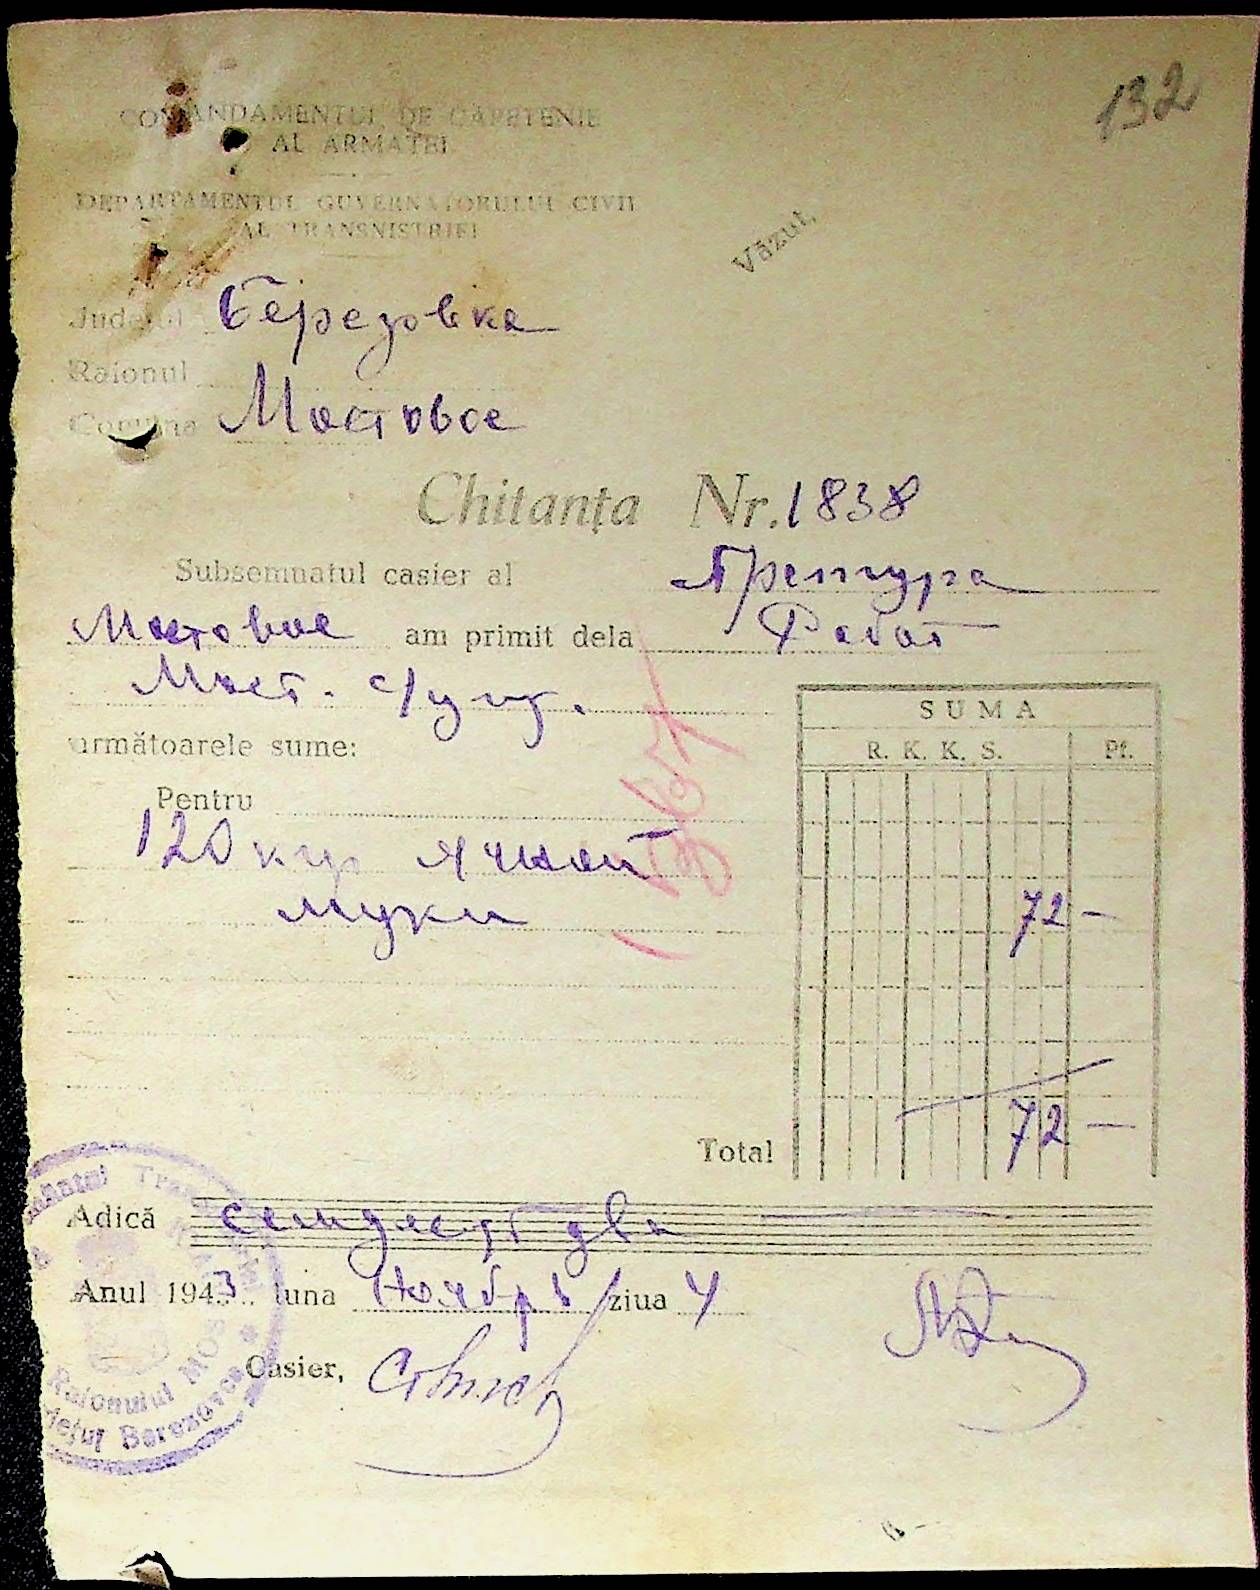 132
COMANDAMENTUL DE CAPETENIE
AL ARMATEI
DEPARTAMENTUL GUVERNATORULUI CIVIL
AL TRANSNISTRIEI
Văzut,
Județul Березовка
Raionul
Comuna Мостовое
Chitanța Nr. 1838
Subsemnatul casier al Претура
Мостовое am primit dela Рабоt
Мост.
SUMA
următoarele sume:
R. K. K. S. Pf.
Pentru
120 кгр ячной
муки
72 —
1367
Total 72 —
Adică семдесят два
Anul 1943 luna Ноябрь ziua 4
Casier,
Raionului MOS
Berezovca